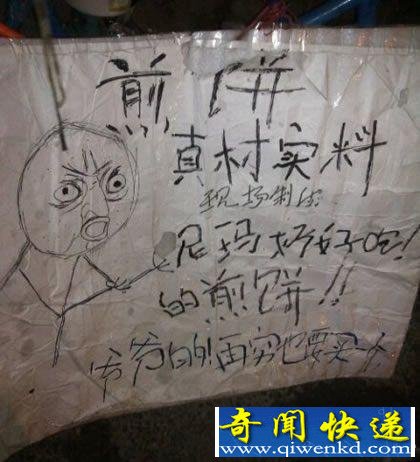 煎饼
真材实料
现场制作
尼玛好好吃!
的煎饼!!
爷爷的!再穷也要买一个
奇闻快递
www.qiwenkd.com